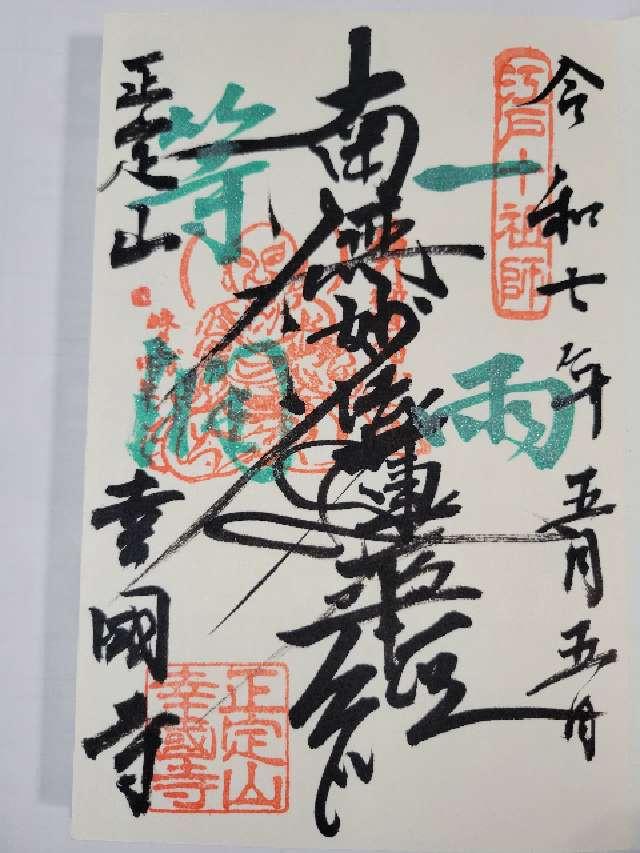 令和七年五月五日
江戸十祖師
一雨
等潤
南無妙法蓮華経
正定山
幸國寺
正定山
幸國寺